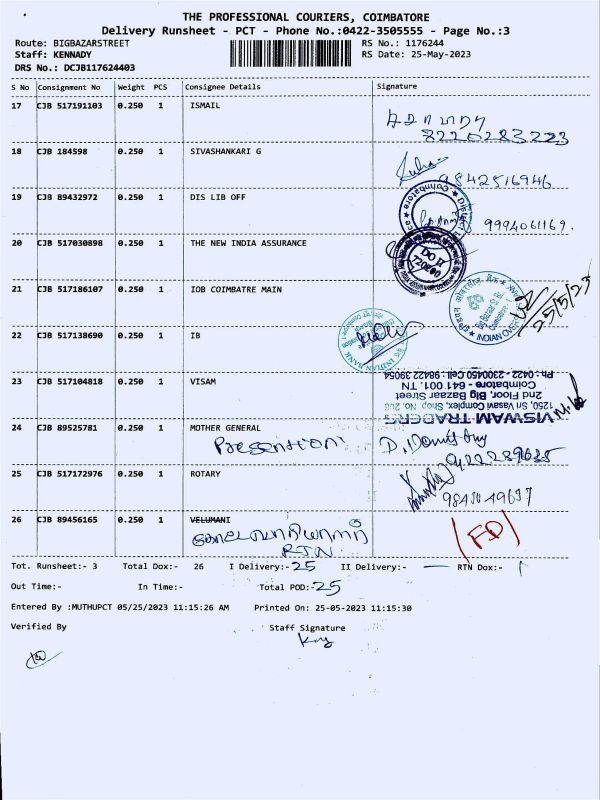 THE PROFESSIONAL COURIERS, COIMBATORE
Delivery Runsheet - PCT - Phone No.:0422-3505555 - Page No.:3
Route: BIGBAZARSTREET RS No.: 1176244
Staff: KENNADY RS Date: 25-May-2023
DRS No.: DCJB117624403
S No Consignment No Weight PCS Consignee Details Signature
17 CJB 517191103 0.250 1 ISMAIL
8220283223
18 CJB 184598 0.250 1 SIVASHANKARI G
9842516946
19 CJB 89432972 0.250 1 DIS LIB OFF
9994061169.
20 CJB 517030898 0.250 1 THE NEW INDIA ASSURANCE
21 CJB 517186107 0.250 1 IOB COIMBATRE MAIN
25/5/23
22 CJB 517138690 0.250 1 IB
INDIAN BANK
23 CJB 517104818 0.250 1 VISAM
VISWAM TRADERS
1250, Sri Vasavi Complex, Shop. No.
2nd Floor, Big Bazaar Street
Coimbatore - 641 001. TN
Ph: 0422 - 2300450 Cell: 98422 39054
24 CJB 89525781 0.250 1 MOTHER GENERAL
Presentation
25 CJB 517172976 0.250 1 ROTARY
26 CJB 89456165 0.250 1 VELUMANI
RTN
Tot. Runsheet:- 3 Total Dox:- 26 I Delivery:- 25 II Delivery:- — RTN Dox:- 1
Out Time:- In Time:- Total POD:- 25
Entered By :MUTHUPCT 05/25/2023 11:15:26 AM Printed On: 25-05-2023 11:15:30
Verified By Staff Signature